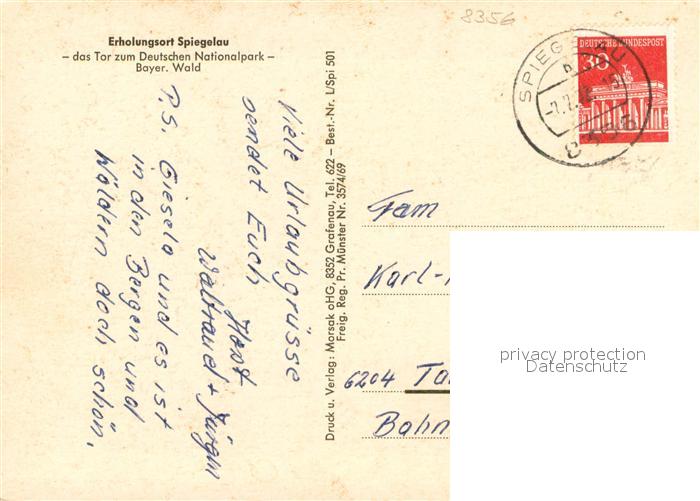 8356
Erholungsort Spiegelau
– das Tor zum Deutschen Nationalpark –
Bayer. Wald
Viele Urlaubgrüsse
sendet Euch
Horst
Waltraud + Jürgen
P.S. Giesela und es ist
in den Bergen und
Wäldern doch schön.
Druck u. Verlag: Morsak oHG, 8352 Grafenau, Tel. 622 – Best.-Nr. L/Spi 501
Freig. Reg. Pr. Münster Nr. 3574/69
DEUTSCHE BUNDESPOST
30
SPIEGELAU
8356
Fam
Karl-
6204 Ta
Bahn
privacy protection
Datenschutz